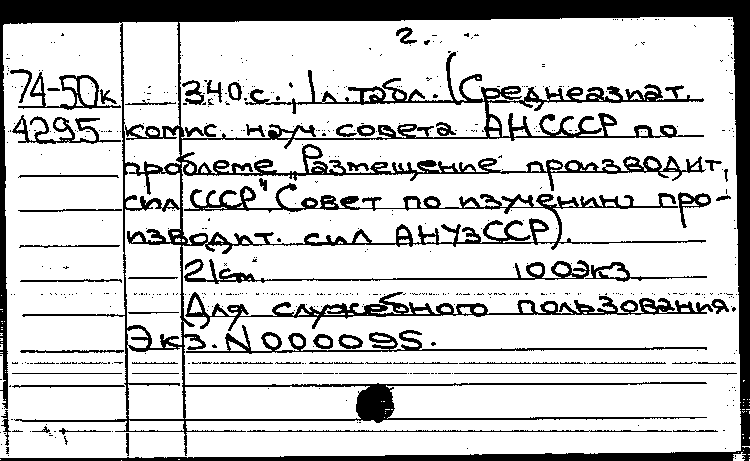 2.
74-50к 340 с.; 1 л. табл. (Среднеазиат.
4295 комис. науч. совета АН СССР по
проблеме "Размещение производит.
сил СССР" Совет по изучению про-
изводит. сил АН УзССР).
21 см. 100 экз.
Для служебного пользования.
Экз. N 000095.